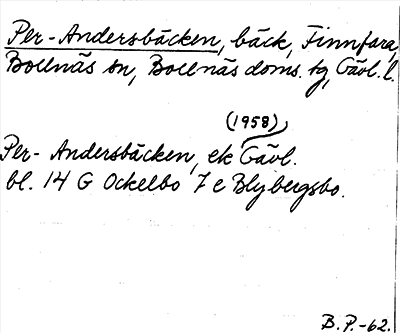 Per-Andersbäcken, bäck, Finnfara,
Bollnäs sn, Bollnäs doms. tg, Gävl. l.
(1958)
Per-Andersbäcken, ek Gävl.
bl. 14 G Ockelbo 7 e Blybergsbo.
B.P.-62.